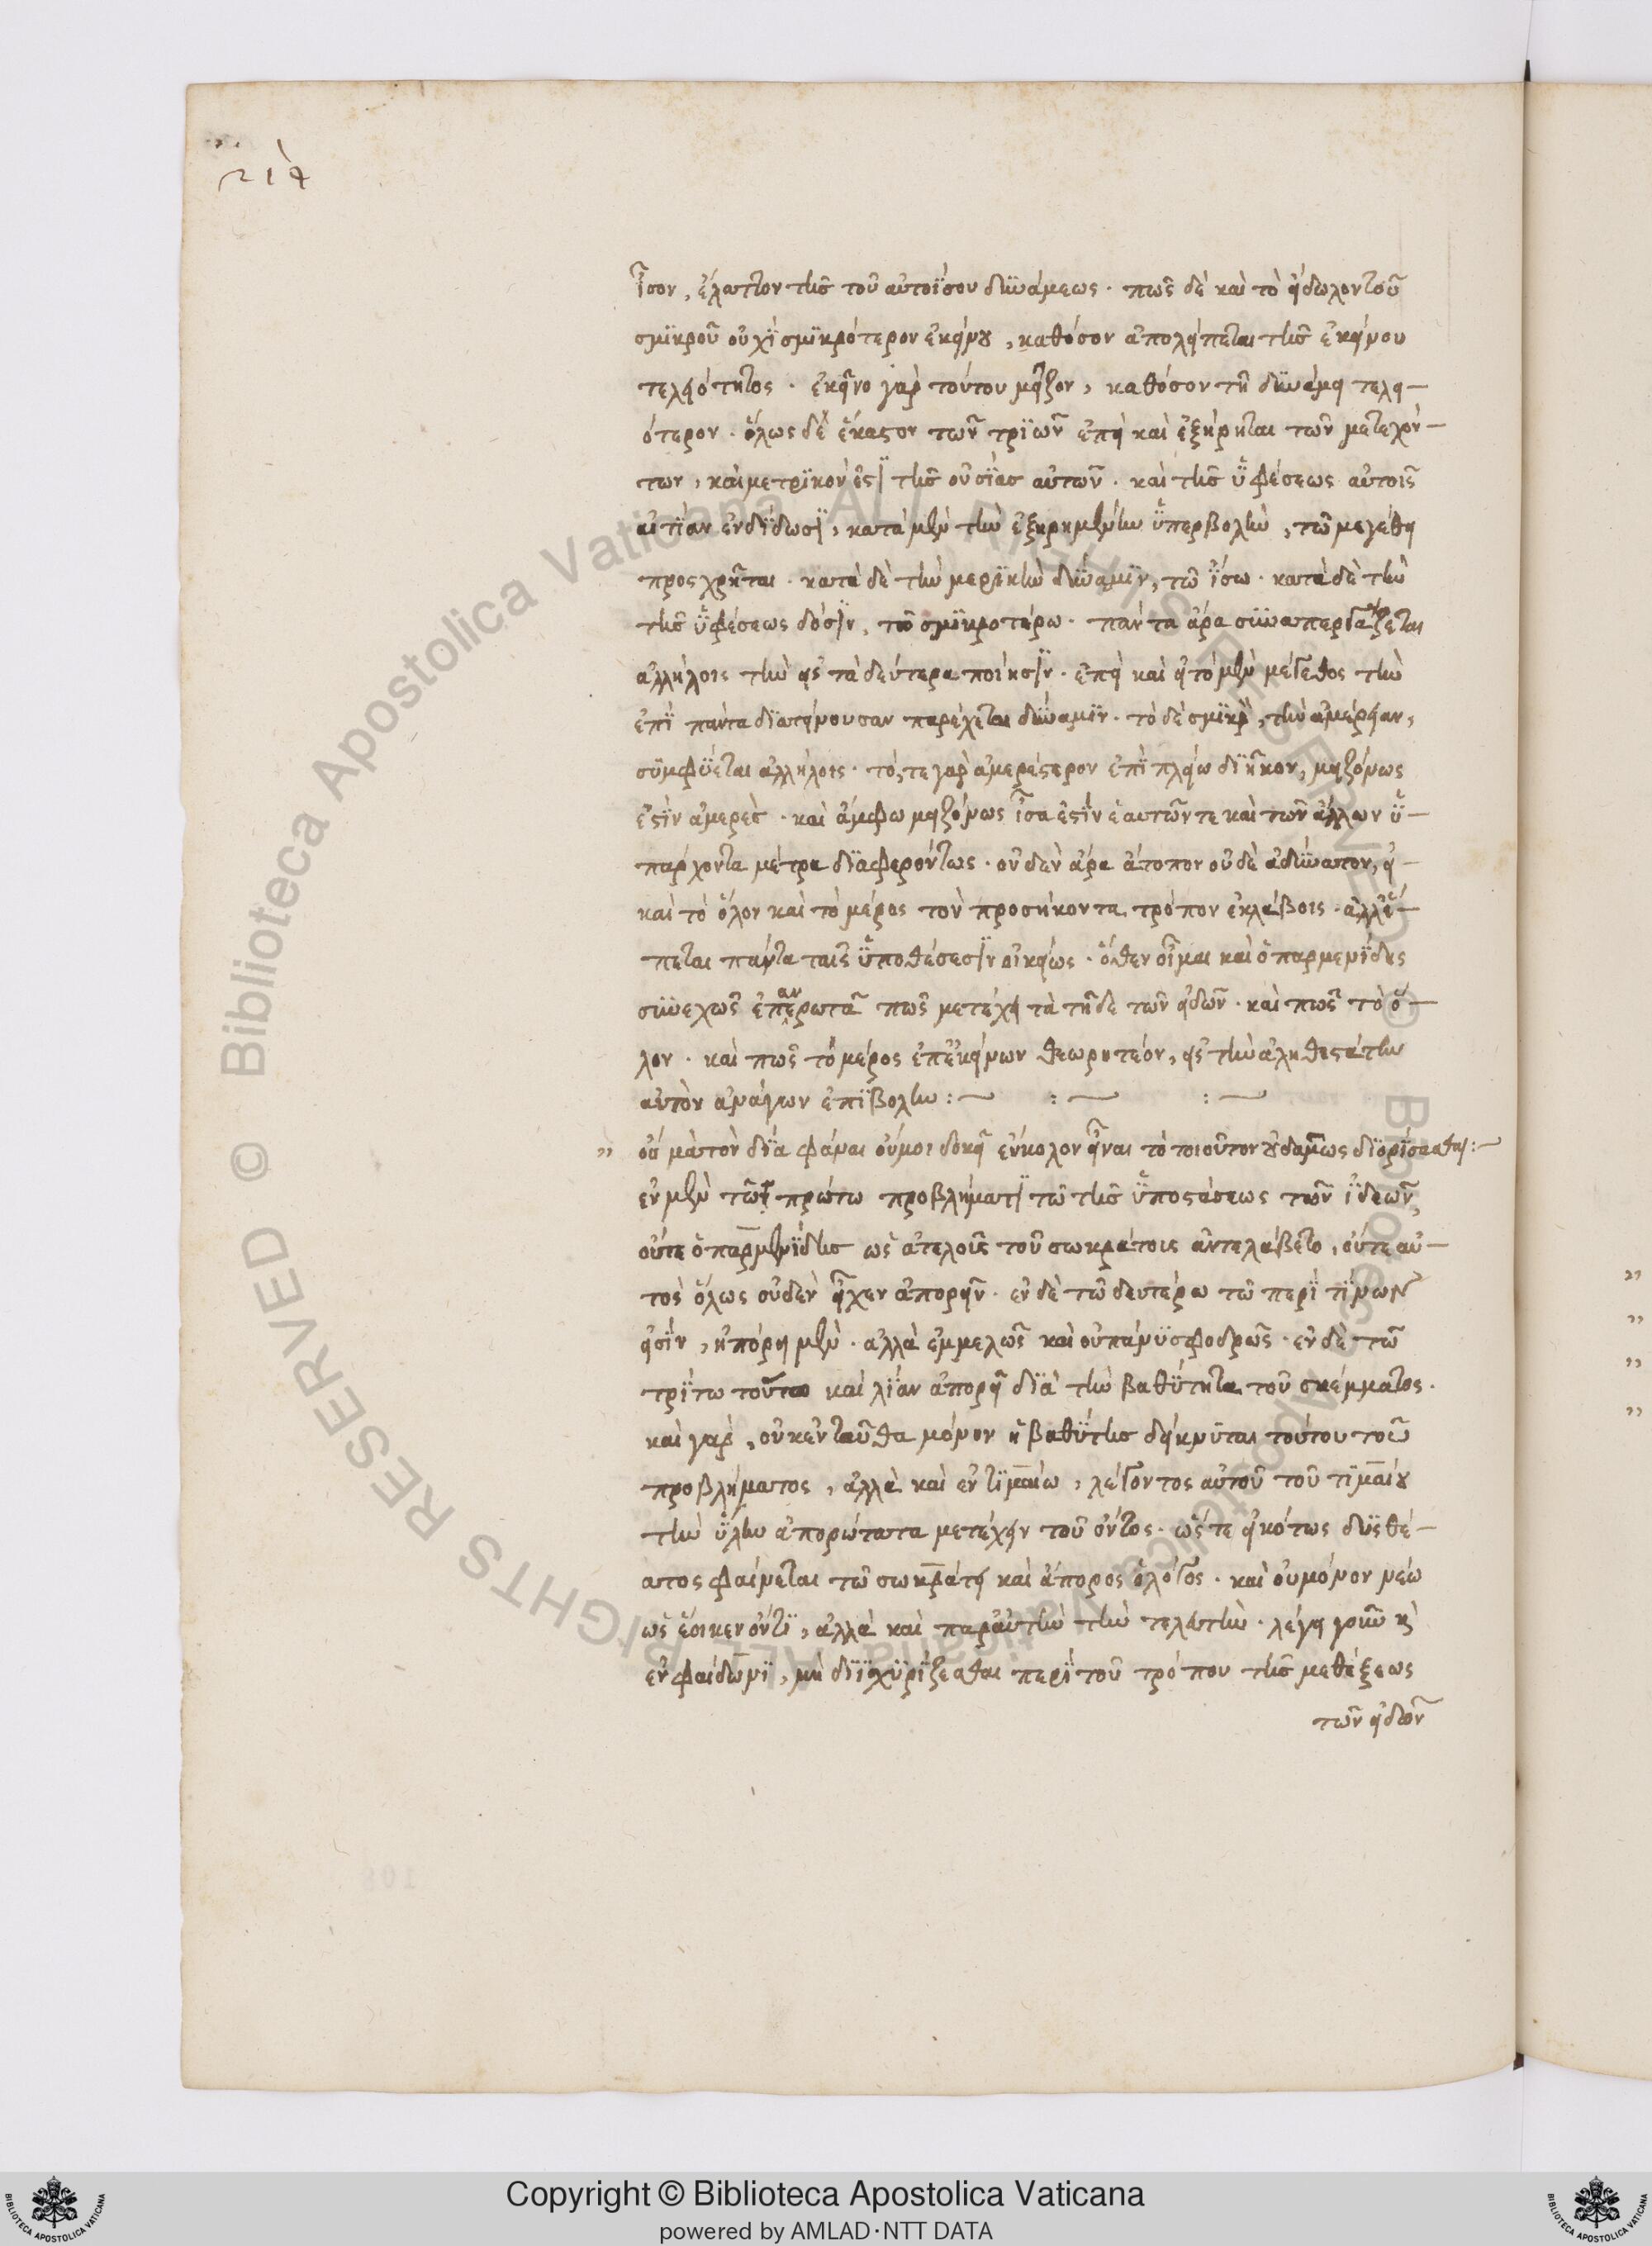 ἶσον, ἔλαττον τῆς τοῦ αὐτοΐσου δυνάμεως · πῶς δὲ καὶ τὸ εἴδωλον τοῦ
σμικροῦ οὐχὶ σμικρότερον ἐκείνου, καθόσον ἀπολείπεται τῆς ἐκείνου
τελειότητος · ἐκεῖνο γὰρ τούτου μεῖζον, καθόσον τῇ δυνάμει τελει-
ότερον · ὅλως δὲ ἕκαστον τῶν τριῶν ἐπεὶ καὶ ἐξῄρηται τῶν μετεχόν-
των, καὶ μετρικόν ἐστι τῆς οὐσίας αὐτῶν · καὶ τῆς ὑφέσεως αὐτοῖς
αἰτίαν ἐνδίδωσι, κατὰ μὲν τὴν ἐξῃρημένην ὑπερβολὴν, τῷ μεγέθει
προσχρῆται · κατὰ δὲ τὴν μερικὴν δύναμιν, τῷ ἴσω · κατὰ δὲ τὴν
τῆς ὑφέσεως δόσιν, τῷ σμικροτέρω · πάντα ἄρα συναπεργάζεται
ἀλλήλοις τὴν εἰς τὰ δεύτερα ποίησιν · ἐπεὶ καὶ εἰ τὸ μὲν μέγεθος τὴν
ἐπὶ πάντα διατείνουσαν παρέχεται δύναμιν · τὸ δὲ σμικρὸν, τὴν ἀμέρειαν,
συμφύεται ἀλλήλοις · τό, τε γὰρ ἀμερέστερον ἐπὶ πλείω διῆκον, μειζόνως
ἐστὶν ἀμερὲς · καὶ ἄμφω μειζόνως ἶσα ἐστὶν ἑαυτῶν τε καὶ τῶν ἄλλων ὑ-
πάρχοντα μέτρα διαφερόντως · οὐδὲν ἄρα ἄτοπον οὐδὲ ἀδύνατον, εἰ
καὶ τὸ ὅλον καὶ τὸ μέρος τὸν προσήκοντα τρόπον ἐκλάβοις · ἀλλ' ἕ-
πεται πάντα ταῖς ὑποθέσεσιν οἰκείως · ὅθεν οἶμαι καὶ ὁ παρμενίδης
συνεχῶς ἐπανερωτᾶ πῶς μετέχει τὰ τῆδε τῶν εἰδῶν · καὶ πῶς τὸ ὅ-
λον · καὶ πῶς τὸ μέρος ἐπ' ἐκείνων θεωρητέον, εἰς τὴν ἀληθεστάτην
αὐτὸν ἀνάγων ἐπιβολήν :~ :~ :~
" οὐ μὰ τὸν δία φάναι οὔ μοι δοκεῖ εὔκολον εἶναι τὸ τοιοῦτον οὐδαμῶς διορίσασθαι :~
ἐν μὲν τῷ πρώτω προβλήματι τῷ τῆς ὑποστάσεως τῶν ἰδεῶν,
οὔτε ὁ παρμενίδης ὡς ἀτελοῦς τοῦ σωκράτους ἀντελάβετο, οὔτε αὐ-
τὸς ὅλως οὐδὲν εἶχεν ἀπορεῖν · ἐν δὲ τῷ δευτέρω τῷ περὶ τίνων
εἰσὶν, ἠπόρει μὲν · ἀλλὰ ἐμμελῶς καὶ οὐ πάνυ σφοδρῶς · ἐν δὲ τῷ
τρίτω τούτω καὶ λίαν ἀπορεῖ διὰ τὴν βαθύτητα τοῦ σκέμματος ·
καὶ γὰρ, οὐκ ἐνταῦθα μόνον ἡ βαθύτης δείκνυται τούτου τοῦ
προβλήματος, ἀλλὰ καὶ ἐν τιμαίω, λέγοντος αὐτοῦ τοῦ τιμαίου
τὴν ὕλην ἀπορώτατα μετέχειν τοῦ ὄντος · ὥστε εἰκότως δυσθέ-
ατος φαίνεται τῷ σωκράτει καὶ ἄπορος ὁ λόγος · καὶ οὐ μόνον νέω
ὡς ἔοικεν ὄντι, ἀλλὰ καὶ παρ' αὐτὴν τὴν τελευτὴν · λέγει γοῦν καὶ
ἐν φαίδωνι, μὴ διϊσχυρίζεσθαι περὶ τοῦ τρόπου τῆς μεθέξεως
τῶν εἰδῶν
Copyright © Biblioteca Apostolica Vaticana
powered by AMLAD·NTT DATA